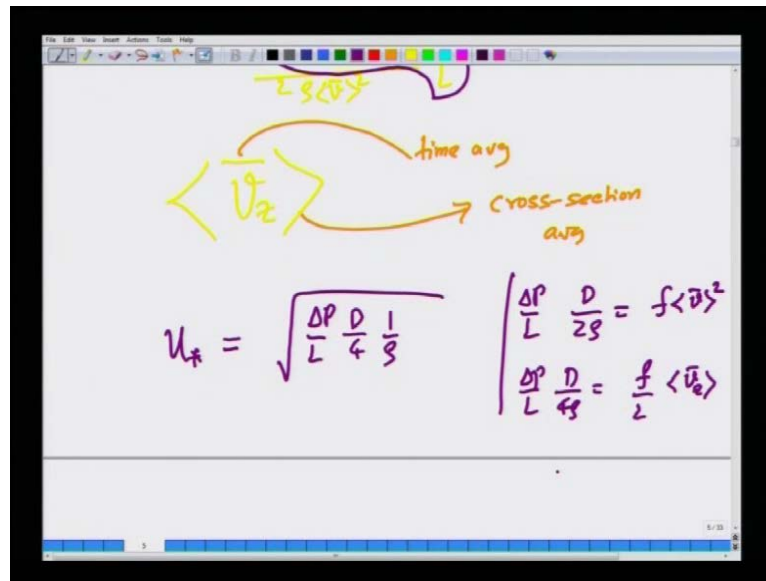 File Edit View Insert Actions Tools Help
2 ρ<v̄>² L
time avg
<v̄z>
cross-section
avg
u* = √(ΔP/L D/4 1/ρ)
ΔP/L D/2ρ = f<v̄>²
ΔP/L D/4ρ = f/2 <v̄z>
5/33
5